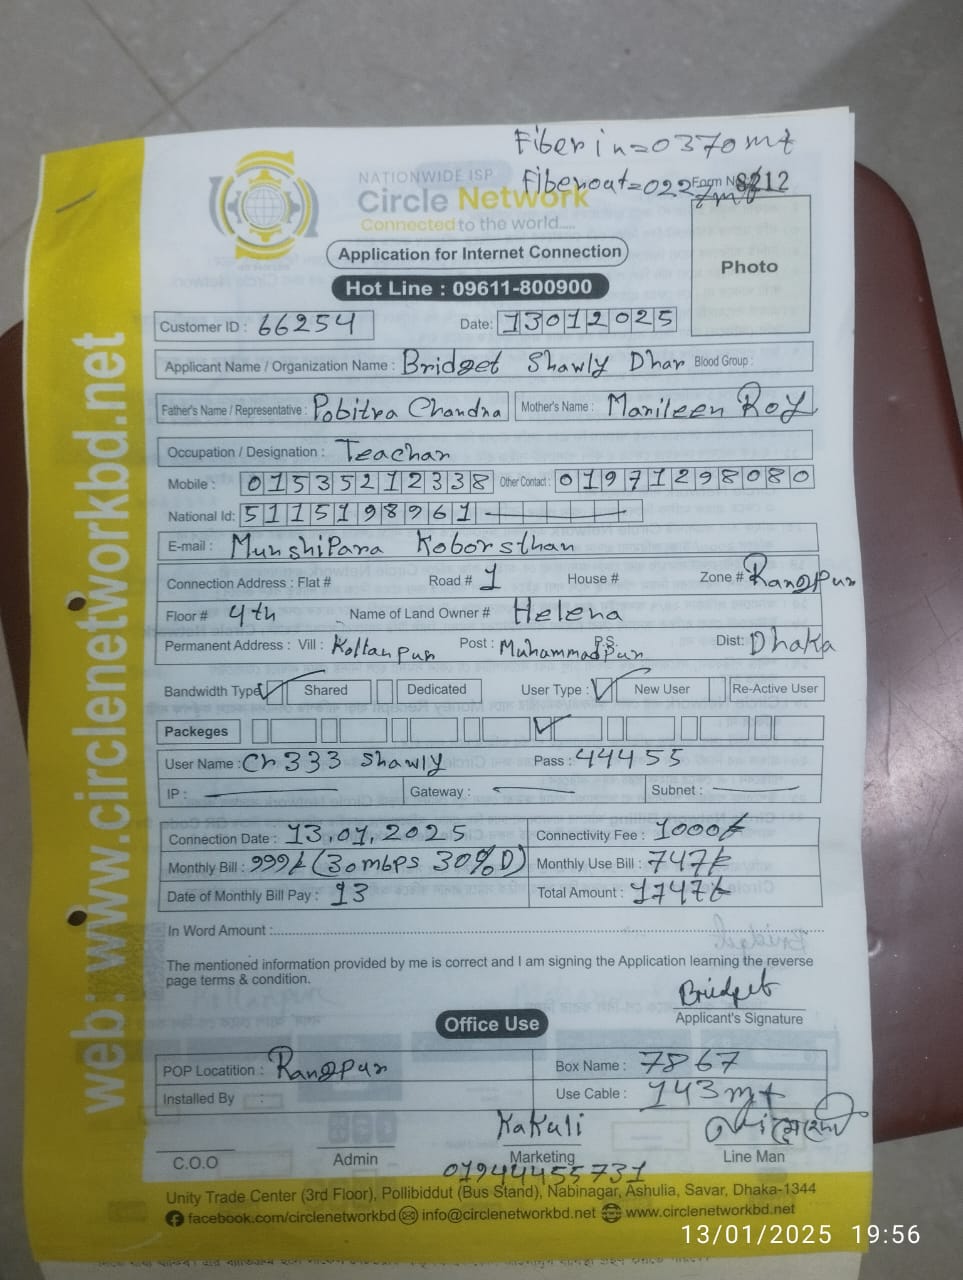 Fiber in=0370mt
Fiberout=0227mt Form No
NATIONWIDE ISP
Circle Network
Connected to the world.....
Application for Internet Connection
Photo
Hot Line : 09611-800900
Customer ID : 66254 Date: 13012025
Applicant Name / Organization Name : Bridget Shawly Dhar Blood Group :
Father's Name / Representative : Pobitra Chandra Mother's Name : Marileen Roy
Occupation / Designation : Teachar
Mobile : 01535212338 Other Contact : 01971298080
National Id: 5115198961
E-mail : MunshiPara Koborsthan
Connection Address : Flat # Road # 1 House # Zone # Rangpur
Floor # 4th Name of Land Owner # Helena
Permanent Address : Vill : Kollanpur Post : Muhammadpur P.S. Dist: Dhaka
Bandwidth Type Shared Dedicated User Type : New User Re-Active User
Packeges
User Name : Cn333 Shawly Pass : 44455
IP : Gateway : Subnet :
Connection Date : 13.01.2025 Connectivity Fee : 1000/-
Monthly Bill : 999/- (30mbps 30%D) Monthly Use Bill : 747/-
Date of Monthly Bill Pay : 13 Total Amount : 1747/-
In Word Amount :
The mentioned information provided by me is correct and I am signing the Application learning the reverse
page terms & condition.
Bridget
Applicant's Signature
Office Use
POP Locatition : Rangpur Box Name : 7867
Installed By : Use Cable : 143mt
Kakuli
C.O.O Admin Marketing Line Man
01944455731
Unity Trade Center (3rd Floor), Pollibiddut (Bus Stand), Nabinagar, Ashulia, Savar, Dhaka-1344
facebook.com/circlenetworkbd info@circlenetworkbd.net www.circlenetworkbd.net
web: www.circlenetworkbd.net
13/01/2025 19:56